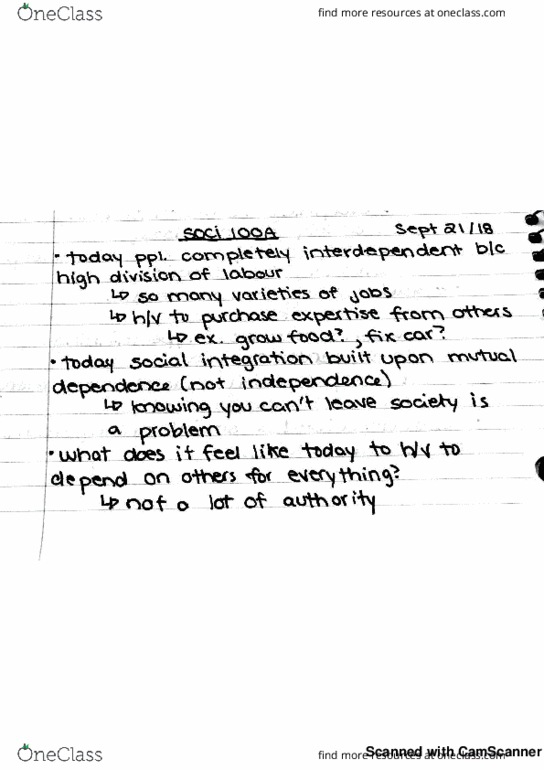 OneClass
find more resources at oneclass.com
SOCI 100A Sept 21/18
• today ppl. completely interdependent b/c
high division of labour
↳ so many varieties of jobs
↳ h/v to purchase expertise from others
↳ ex. grow food?, fix car?
• today social integration built upon mutual
dependence (not independence)
↳ knowing you can't leave society is
a problem
• what does it feel like today to h/v to
depend on others for everything?
↳ not a lot of authority
OneClass
find more resources at oneclass.com
Scanned with CamScanner